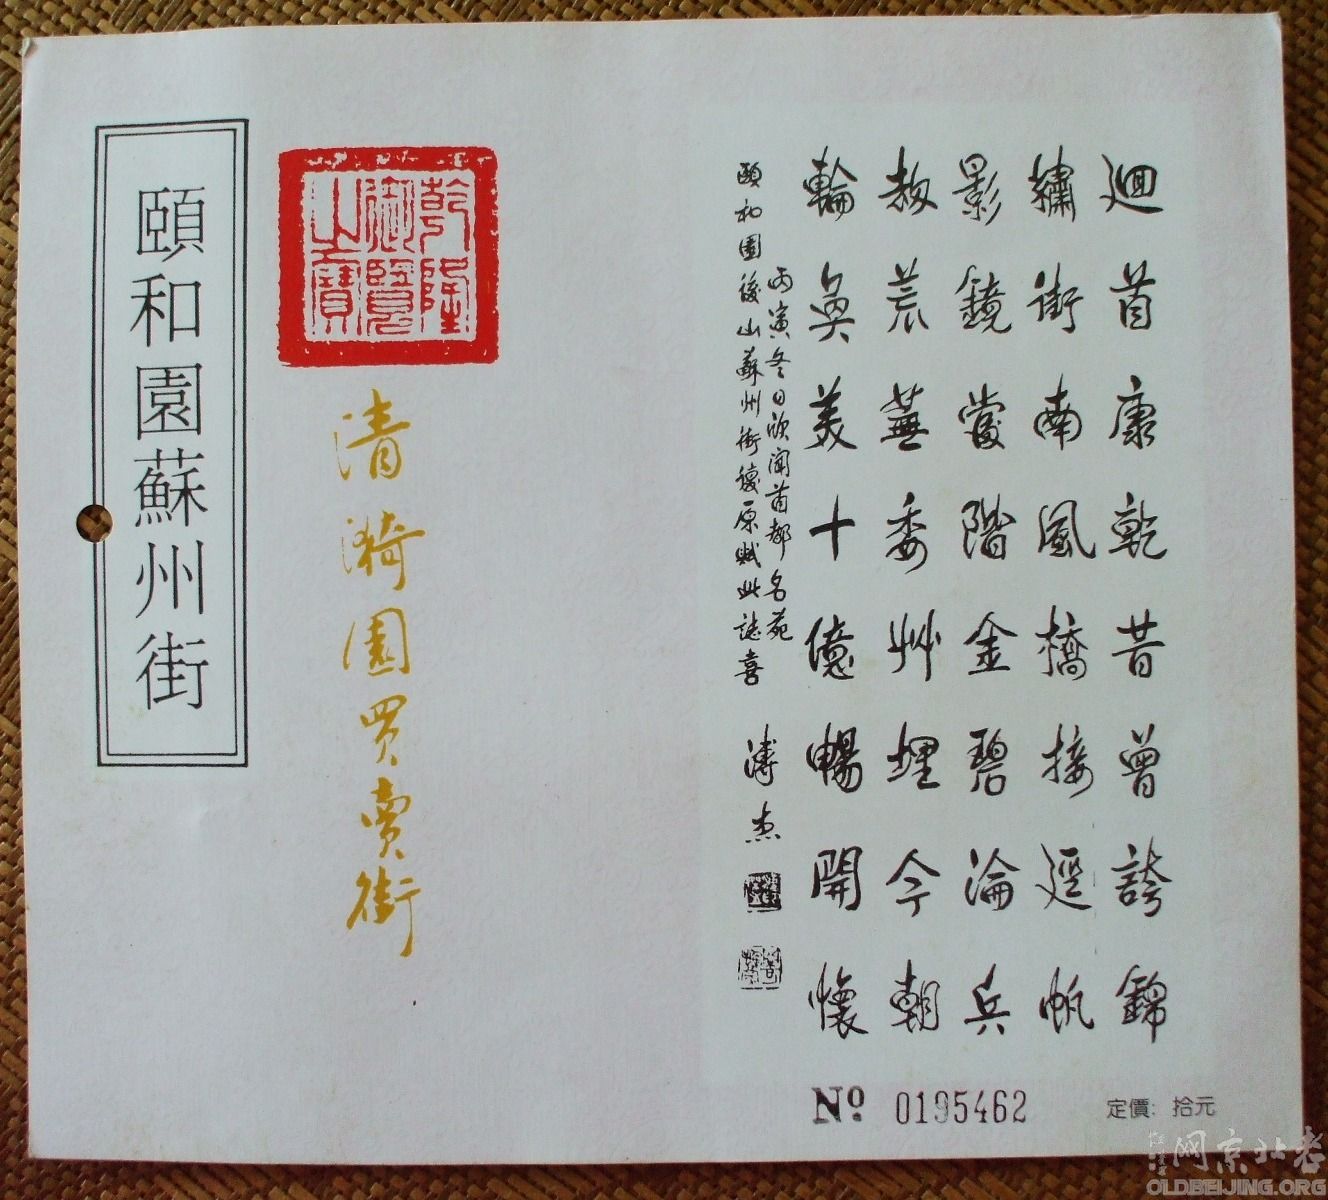 迴首康乾昔曾誇錦
繡街南風橋接逕帆
影鏡當階金碧淪兵
荒蕪委艸埋今朝
輪奐美十億暢開懷
丙寅冬日欣聞首都名苑
頤和園後山蘇州街復原賦此誌喜
溥杰
乾隆
御覽
之寶
清漪園買賣街
頤和園蘇州街
Nº 0195462
定價：拾元
老北京网
OLDBEIJING.ORG